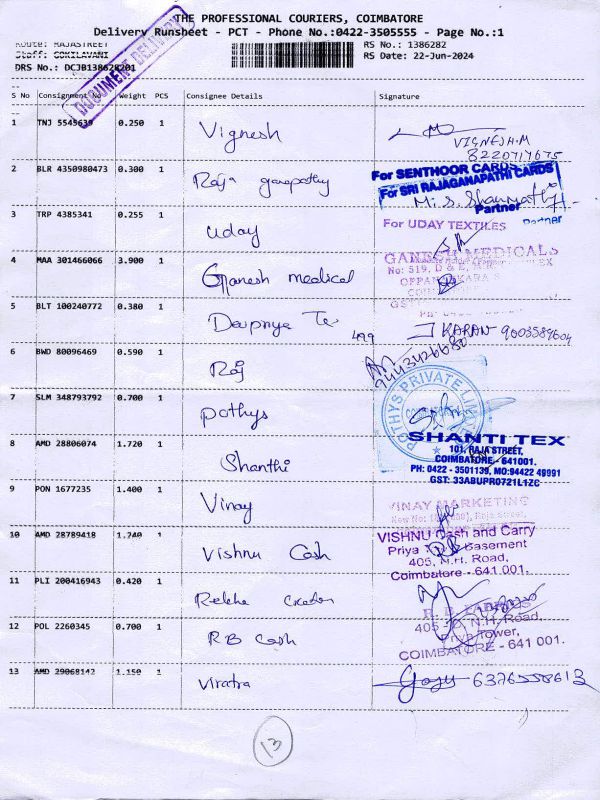 THE PROFESSIONAL COURIERS, COIMBATORE
Delivery Runsheet - PCT - Phone No.:0422-3505555 - Page No.:1
Route: RAJASTREET
RS No.: 1386282
Staff: GOKILAVANI
RS Date: 22-Jun-2024
DRS No.: DCJB138628201
DOCUMENT DELIVERY
S No Consignment No Weight PCS Consignee Details Signature
1 TNJ 5545639 0.250 1 Vignesh
VIGNESH.M
8220717675
2 BLR 4350980473 0.300 1 Raja ganapathy
For SENTHOOR CARDS
For SRI RAJAGANAPATHI CARDS
Partner
Partner
3 TRP 4385341 0.255 1 uday
For UDAY TEXTILES
4 MAA 301466066 3.900 1 Ganesh medical
GANESH MEDICALS
No: 519, D & E,
5 BLT 100240772 0.380 1
KARAN 9003584604
6 BWD 80096469 0.590 1 Raj
9443426680
7 SLM 348793792 0.700 1 pothys
POTHYS PRIVATE
8 AMD 28806074 1.720 1 Shanthi
SHANTI TEX
101, RAJA STREET,
COIMBATORE - 641001.
PH: 0422 - 3501139, MO:94422 49991
GST: 33ABUPR0721L1ZC
9 PON 1677235 1.400 1 Vinay
VINAY MARKETING
10 AMD 28789418 1.240 1 Vishnu Cash
VISHNU Cash and Carry
Priya Basement
405, N.H. Road,
Coimbatore - 641 001.
11 PLI 200416943 0.420 1
12 POL 2260345 0.700 1 RB Cash
405 - D, N.H. Road,
Tower,
COIMBATORE - 641 001.
13 AMD 29068142 1.150 1 Viratra
6376558613
13